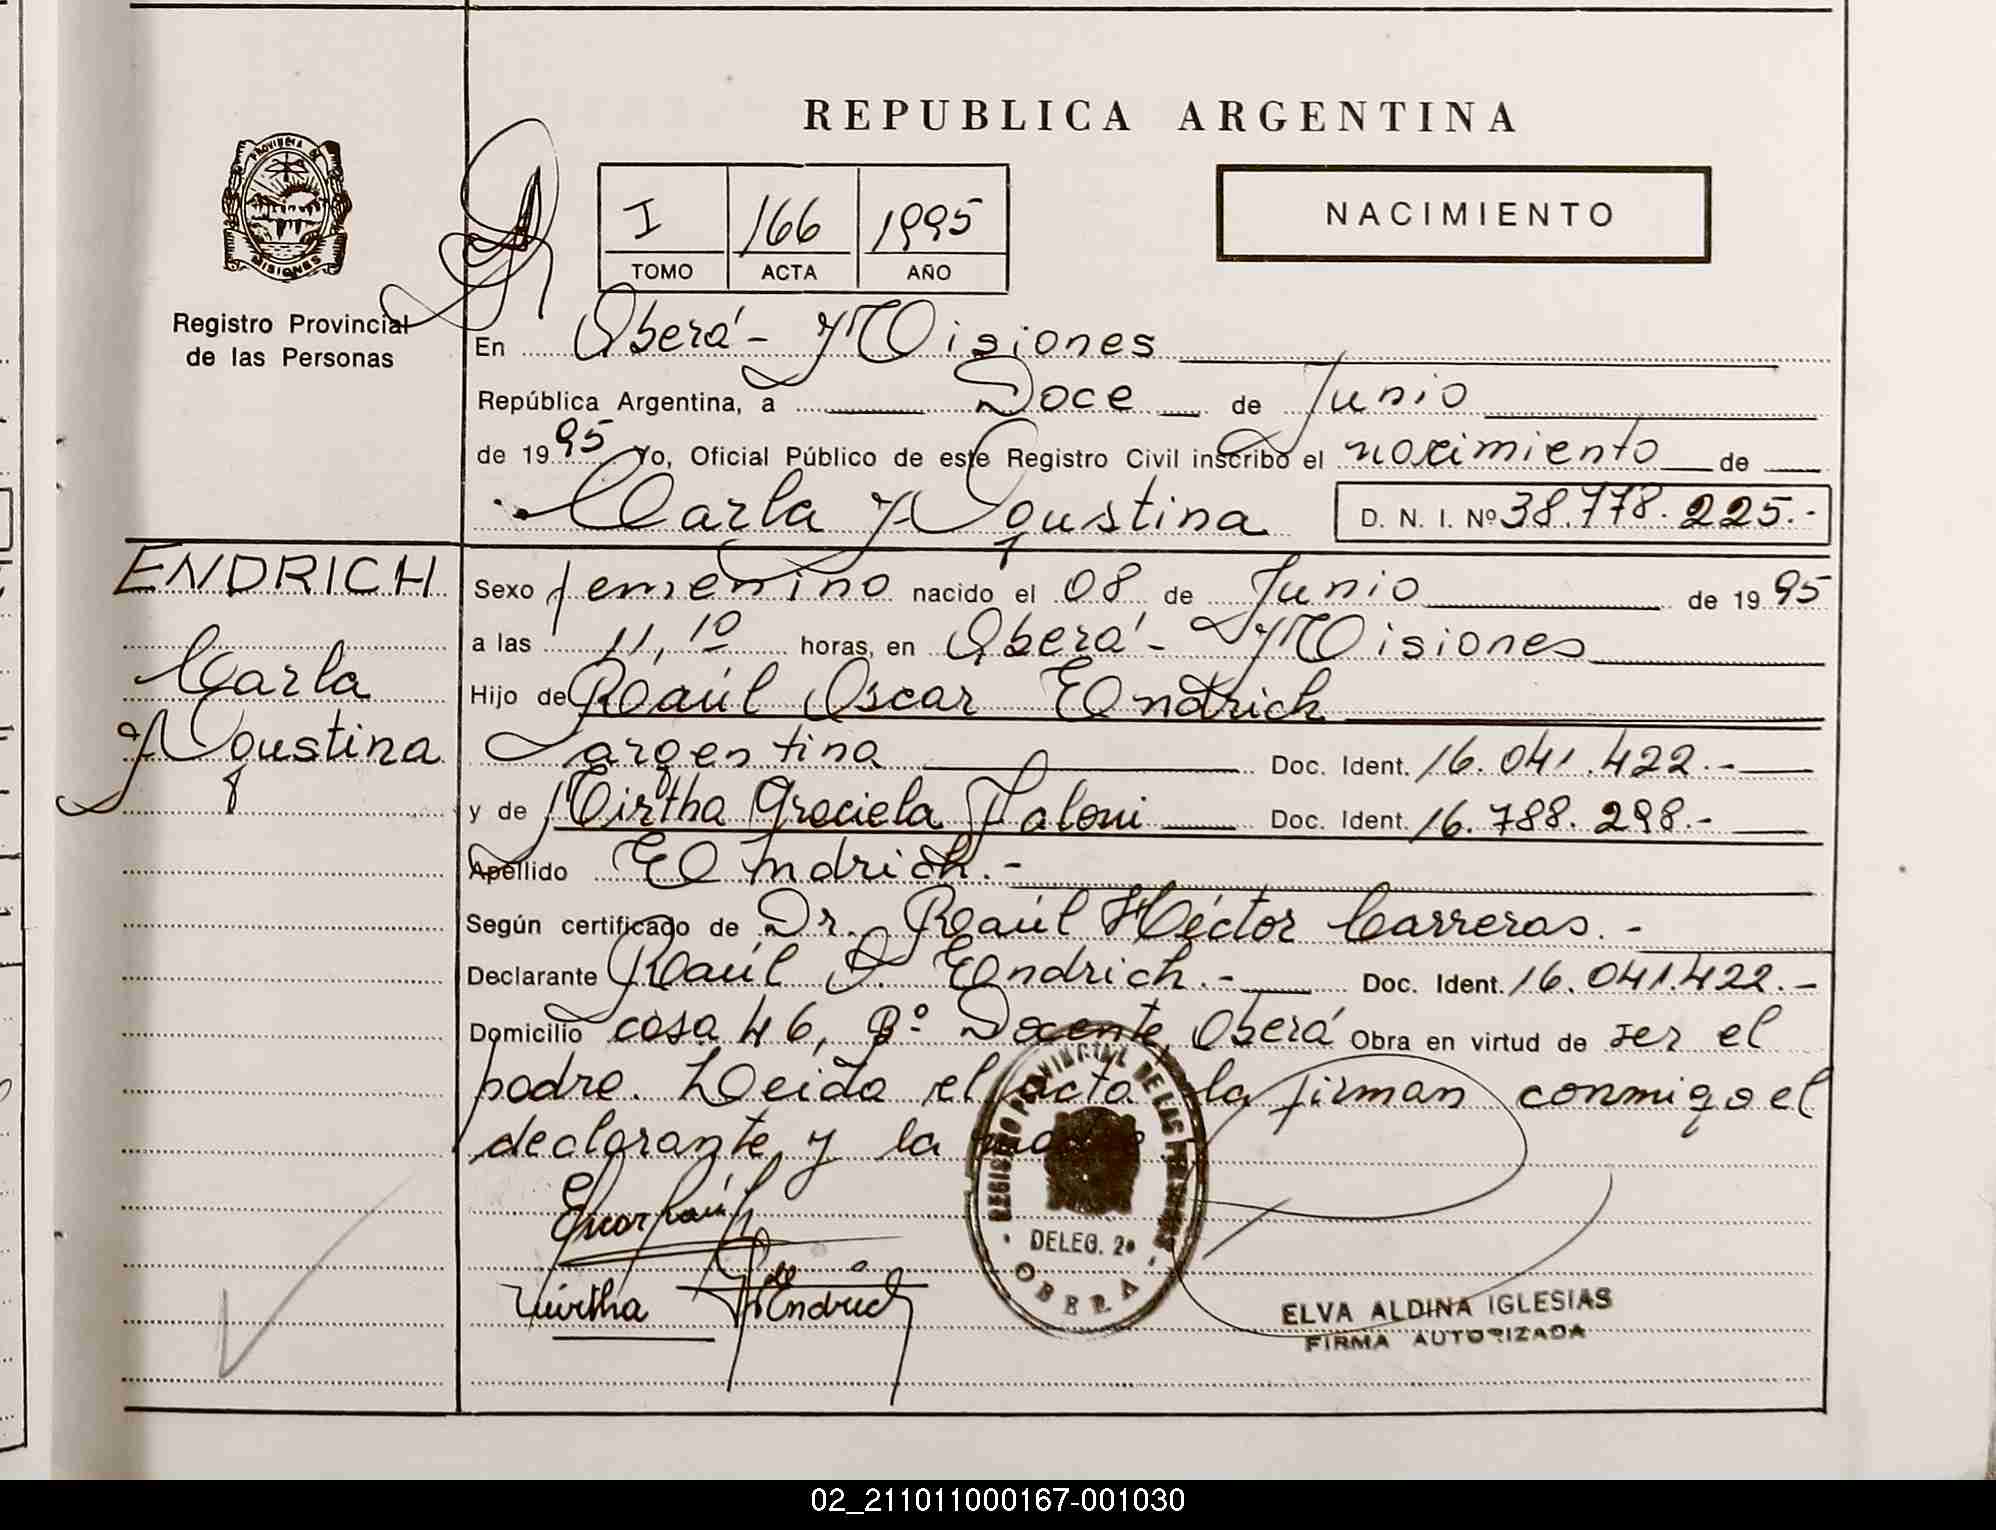 REPUBLICA ARGENTINA
PROVINCIA DE MISIONES
Registro Provincial
de las Personas
I 166 1995
TOMO ACTA AÑO
NACIMIENTO
En Oberá - Misiones
República Argentina, a Doce de Junio
de 1995 Yo, Oficial Público de este Registro Civil inscribo el nacimiento de
Carla Agustina D. N. I. Nº 38.778.225.-
ENDRICH
Carla
Agustina
Sexo femenino nacido el 08 de Junio de 1995
a las 11,10 horas, en Oberá - Misiones
Hijo de Raúl Oscar Endrich
argentina Doc. Ident. 16.041.422.-
y de Mirtha Graciela Doc. Ident. 16.788.298.-
Apellido Endrich.-
Según certificado de Dr. Raúl Héctor Carreras.-
Declarante Raúl O. Endrich.- Doc. Ident. 16.041.422.-
Domicilio casa 46, Bº Docente, Oberá Obra en virtud de ser el
padre. Leida el acta la firman conmigo el
declarante y la madre
Mirtha de Endrich
REGISTRO PROVINCIAL DE LAS PERSONAS
DELEG. 2ª
OBERA
ELVA ALDINA IGLESIAS
FIRMA AUTORIZADA
02_211011000167-001030